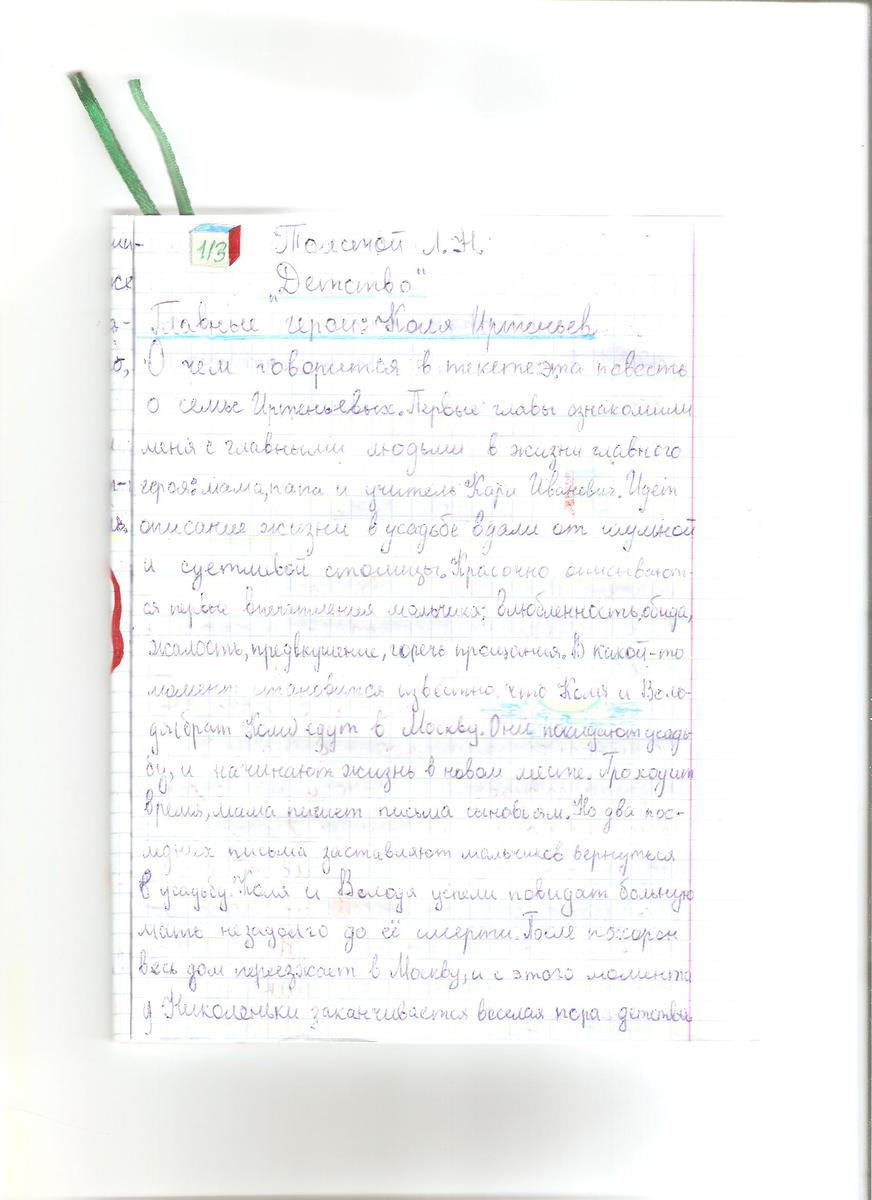 1/3
Толстой Л.Н.
„Детство"
Главные герои: Коля Иртеньев
О чем говорится в тексте: эта повесть
о семье Иртеньевых. Первые главы ознакомили
меня с главными людьми в жизни главного
героя: мама, папа и учитель Карл Иванович. Идёт
описание жизни в усадьбе вдали от шумной
и суетливой столицы. Красочно описывают-
ся первые впечатления мальчика: влюбленность, обида,
жалость, предвкушение, горечь прощания. В какой-то
момент становится известно, что Коля и Воло-
дя (брат Коли) едут в Москву. Они покидают усадь-
бу, и начинают жизнь в новом месте. Проходит
время, мама пишет письма сыновьям. Но два пос-
ледних письма заставляют мальчиков вернуться
в усадьбу. Коля и Володя успели повидат больную
мать незадолго до её смерти. После похорон
весь дом переезжает в Москву, и с этого момента
у Николеньки заканчивается веселая пора детства